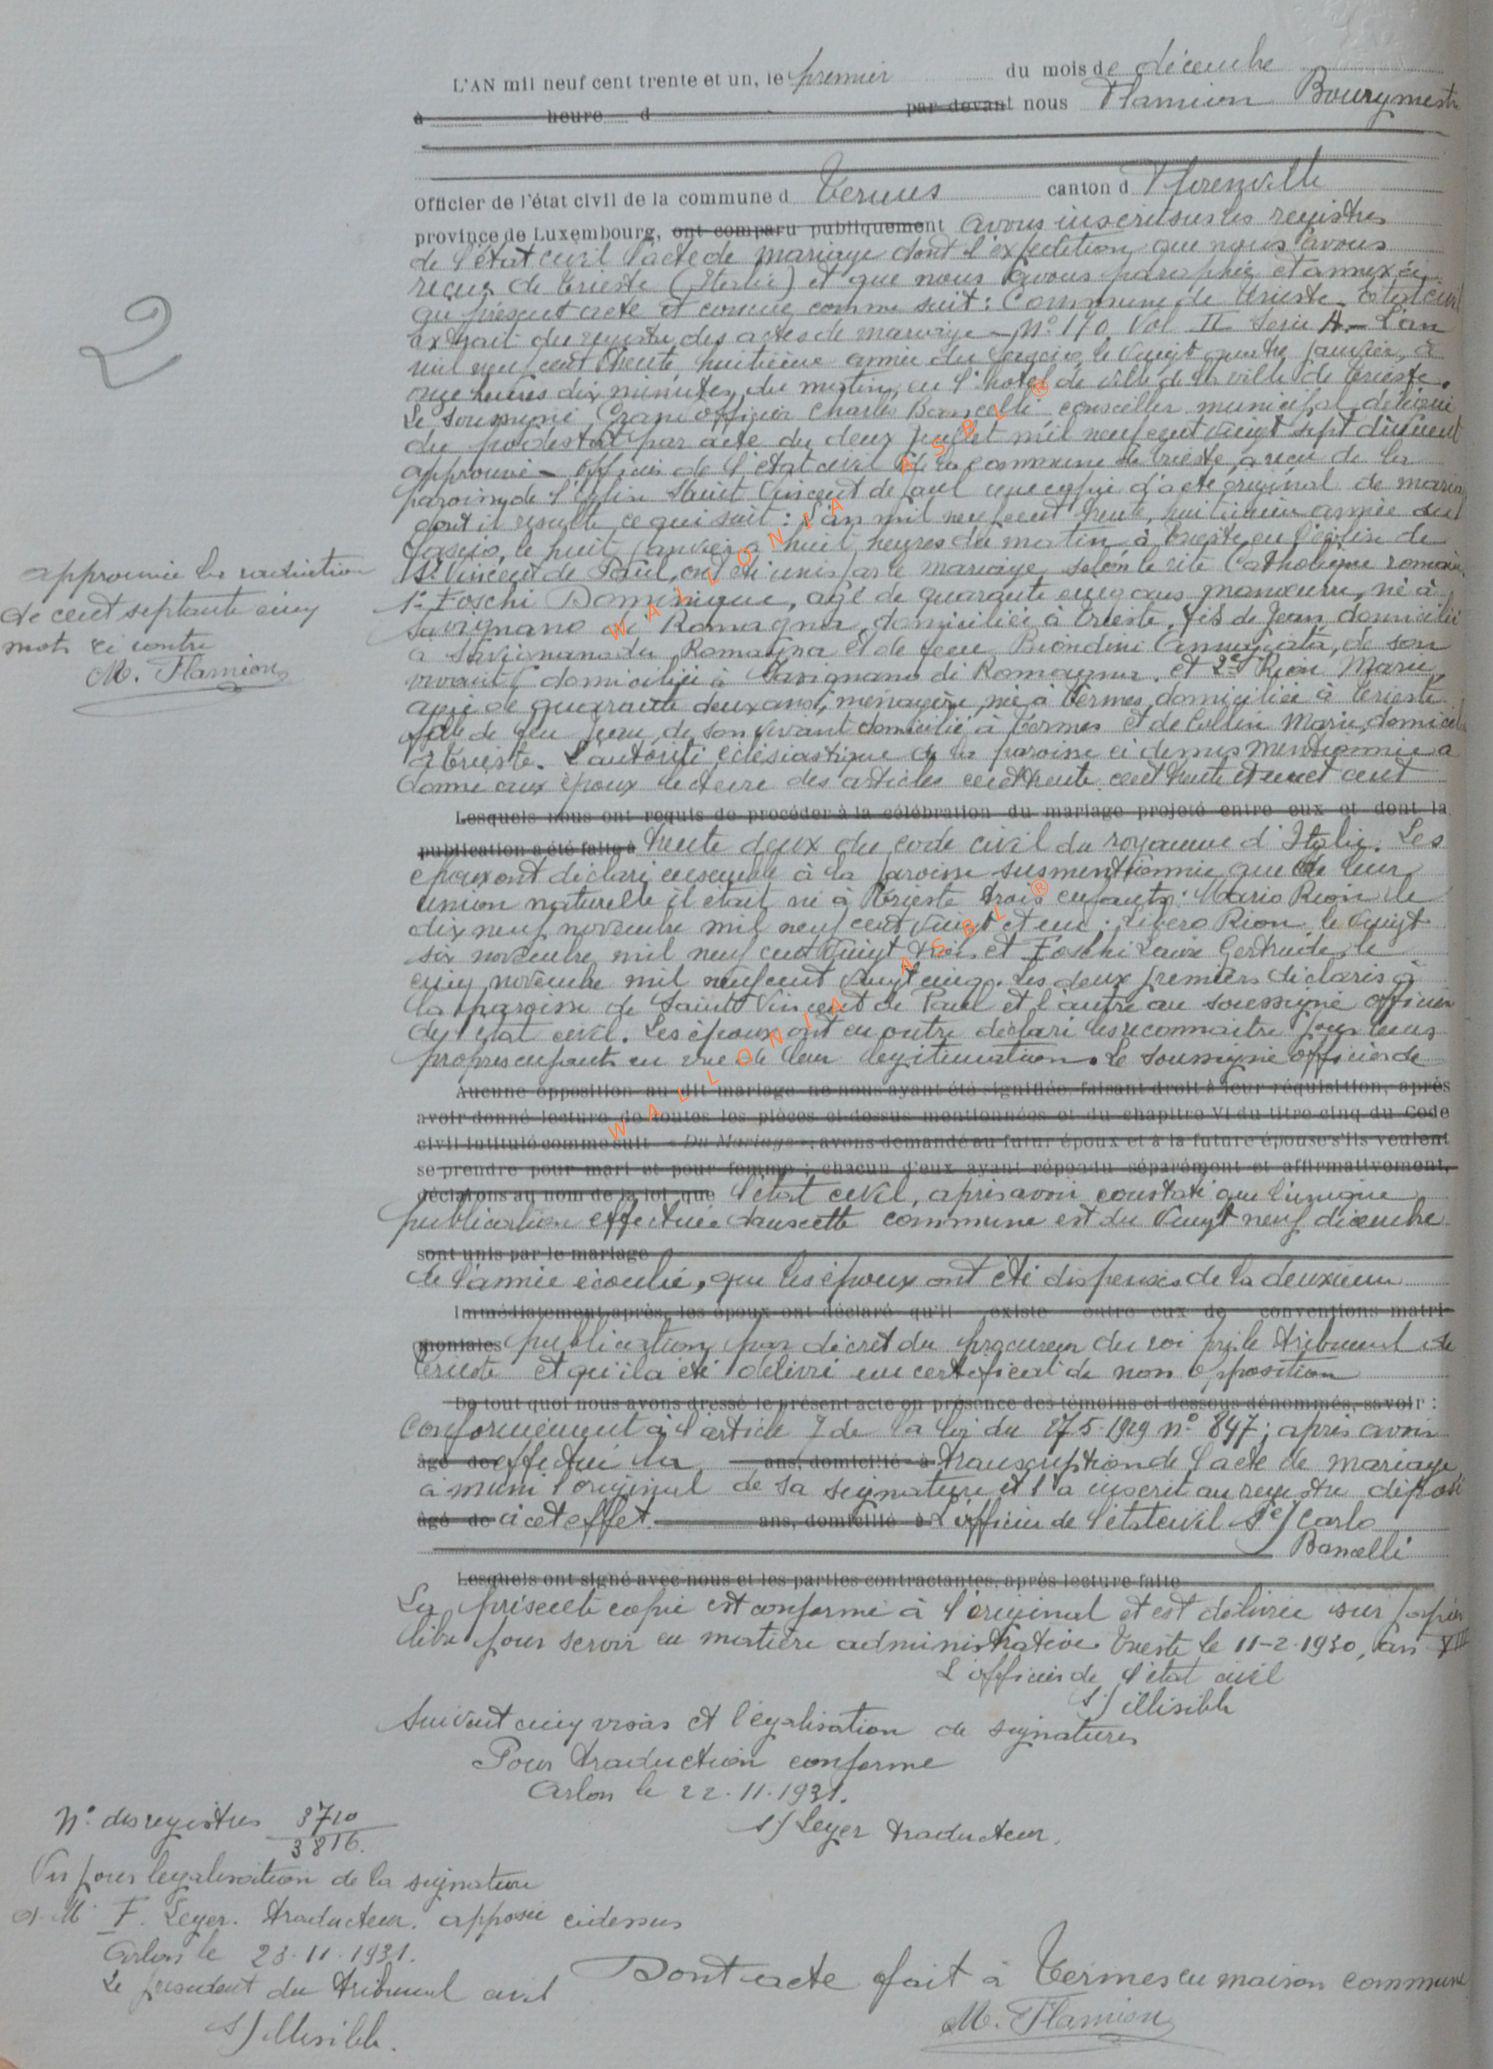 L'AN mil neuf cent trente et un, le premier du mois de décembre
à heure d par devant nous Flamion Bourgmestre
Officier de l'état civil de la commune d Termes canton d Florenville
province de Luxembourg, ont comparu publiquement avons inscrit sur les registres
de l'état civil l'acte de mariage dont l'expédition que nous avons
reçue de Trieste (Italie) et que nous avons paraphée et annexée
au présent acte et conçue comme suit : Commune de Trieste - Etat civil
extrait du registre des actes de mariage - N° 170 Vol II Serie A - L'an
mil neuf cent trente huitième année du fascio, le vingt quatre janvier, à
onze heures dix minutes du matin, en l'hotel de ville de la ville de Trieste.
Le soussigné Grand officier Charles Bancelli conseiller municipal délégué
du podestat par acte du deux juillet mil neuf cent vingt sept dûment
approuvé - officier de l'état civil de la commune de Trieste, a reçu de la
paroisse de l'Eglise Saint Vincent de Paul une copie d'acte original de mariage
dont il résulte ce qui suit : L'an mil neuf cent trente, huitième année du
fascio, le huit janvier à huit heures du matin à Trieste en l'église de
St Vincent de Paul, ont été unis par le mariage selon le rite Catholique romain
approuvée la radiation
de cent septante cinq
mots ci contre
M. Flamion
1° Foschi Dominique, agé de quarante cinq ans, manœuvre, né à
Savignano di Romagna, domicilié à Trieste, fils de Jean domicilié
à Savignano di Romagna et de feu Biondini Annunziata, de son
vivant domiciliée à Savignano di Romagna. et 2° Rion Marie,
agée de quarante deux ans, ménagère, née à Termes, domiciliée à Trieste
fille de feu Jean, de son vivant domicilié à Termes et de Collin Marie, domiciliée
à Trieste. L'autorité eclésiastique de la paroisse ci dessus mentionnée a
donné aux époux lecture des articles cent trente cent trente et un et cent
Lesquels nous ont requis de procéder à la célébration du mariage projeté entre eux et dont la
publication a été faite à trente deux du code civil du royaume d'Italie. Les
époux ont déclaré ensemble à la paroisse susmentionnée que de leur
union naturelle il était né à Trieste trois enfants : Mario Rion le
dix neuf novembre mil neuf cent vingt et un ; Libero Rion le vingt
six novembre mil neuf cent vingt trois et Foschi Laure Gertrude, le
cinq novembre mil neuf cent vingt cinq. Les deux premiers déclarés à
la paroisse de Saint Vincent de Paul et l'autre au soussigné officier
de l'état civil. Les époux ont en outre déclaré les reconnaitre pour leurs
propres enfants en vue de leur légitimation. Le soussigné officier de
Aucune opposition au dit mariage ne nous ayant été signifiée, faisant droit à leur réquisition, après
avoir donné lecture de toutes les pièces ci-dessus mentionnées et du chapitre VI du titre cinq du Code
civil intitulé comme suit « Du Mariage », avons demandé au futur époux et à la future épouse s'ils veulent
se prendre pour mari et pour femme ; chacun d'eux ayant répondu séparément et affirmativement,
déclarons au nom de la loi que l'état civil, après avoir constaté que l'unique
publication effectuée dans cette commune est du vingt neuf décembre
sont unis par le mariage
de l'année écoulée, que les époux ont été dispensés de la deuxième
Immédiatement après, les époux ont déclaré qu'il existe entre eux de conventions matri-
moniales publication par décret du procureur du roi près le tribunal de
Trieste et qu'il a été délivré un certificat de non opposition
De tout quoi nous avons dressé le présent acte en présence des témoins ci-dessous dénommés, savoir :
conformément à l'article 7 de la loi du 27.5.1929 n° 847 ; après avoir
âgé de effectué la ans, domicilié à transcription de l'acte de mariage
a muni l'original de sa signature et l'a inscrit au registre déposé
âgé de à cet effet. ans, domicilié à L'officier de l'état civil Sé/ Carlo
Bancelli
Lesquels ont signé avec nous et les parties contractantes, après lecture faite
La présente copie est conforme à l'original et est délivrée sur papier
libre pour servir en matière administrative. Trieste le 11-2-1930, an VIII
L'officier de l'état civil
S/ illisible
Suivent cinq visas et légalisation de signatures
Pour traduction conforme
Arlon le 22.11.1931.
S/ Leyer traducteur.
N° des registres 3710
3816.
Vu pour légalisation de la signature
d. M. F. Leyer. traducteur. apposée ci dessus
Arlon le 23.11.1931.
Le président du tribunal civil
S/ illisible.
Dont acte fait à Termes en maison commune
M. Flamion
2
WALLONIA ASBL ®
WALLONIA ASBL ®